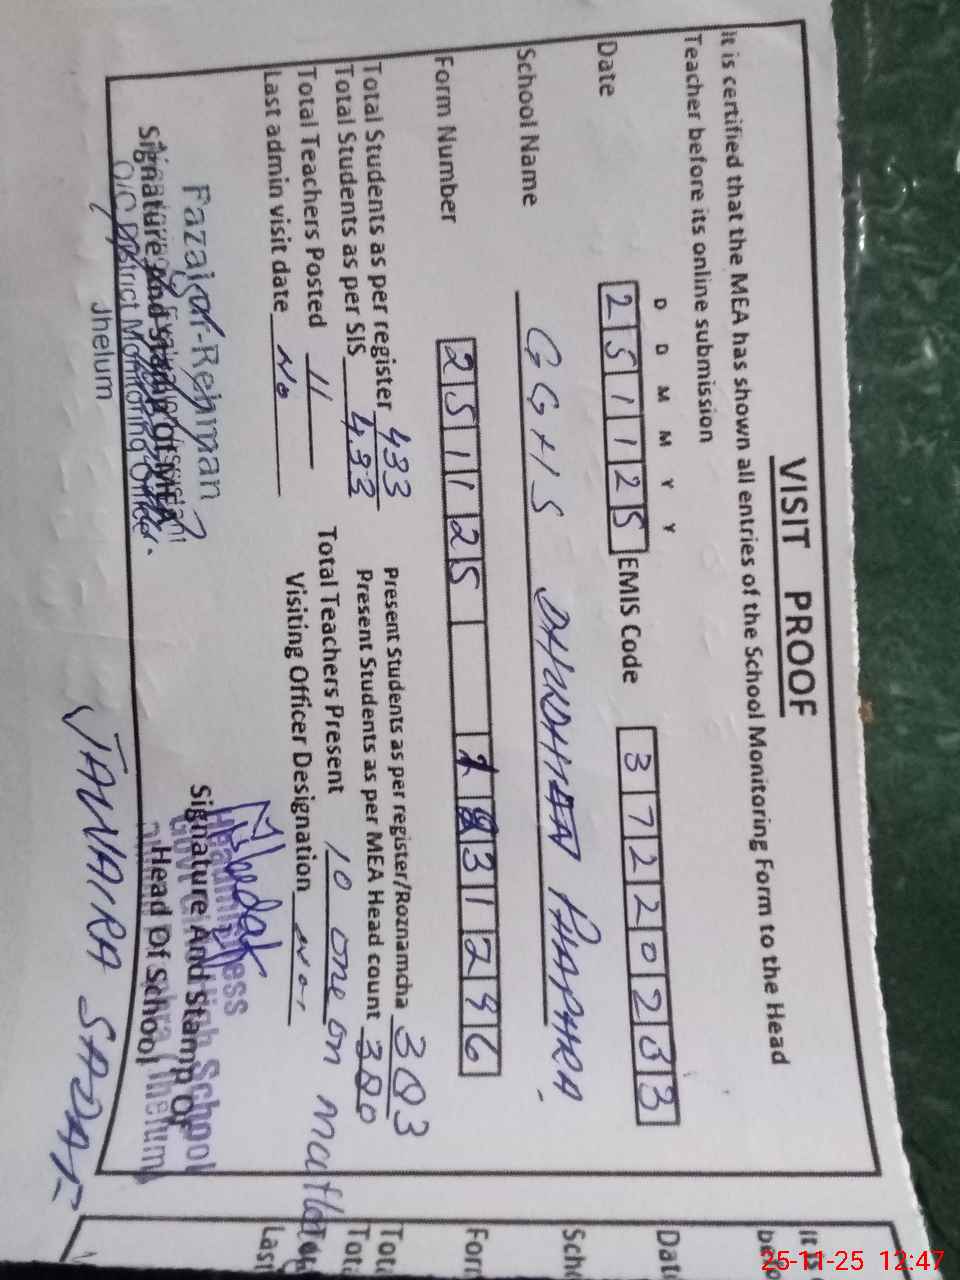 VISIT PROOF
It is certified that the MEA has shown all entries of the School Monitoring Form to the Head
Teacher before its online submission
D D M M Y Y
Date 2 5 1 1 2 5 EMIS Code 3 7 2 2 0 2 3 3
School Name GGHS DHUDHHA PHAPHRA
Form Number 2 5 1 1 2 5 3 1 2 4 6
Total Students as per register 433 Present students as per register/Roznamcha 383
Total Students as per SIS 433 Present Students as per MEA Head count 380
Total Teachers Posted 11 Total Teachers Present 10 one on
Last admin visit date No Visiting Officer Designation
Fazal-ur-Rehman
Signature And Stamp Of MEA
O/C District Monitoring Officer
Jhelum
Headmistress
Signature And Stamp Of
Head Of School
It is
befo
Date
Sch
Form
Tota
Tota
Tota
Last
25-11-25 12:47